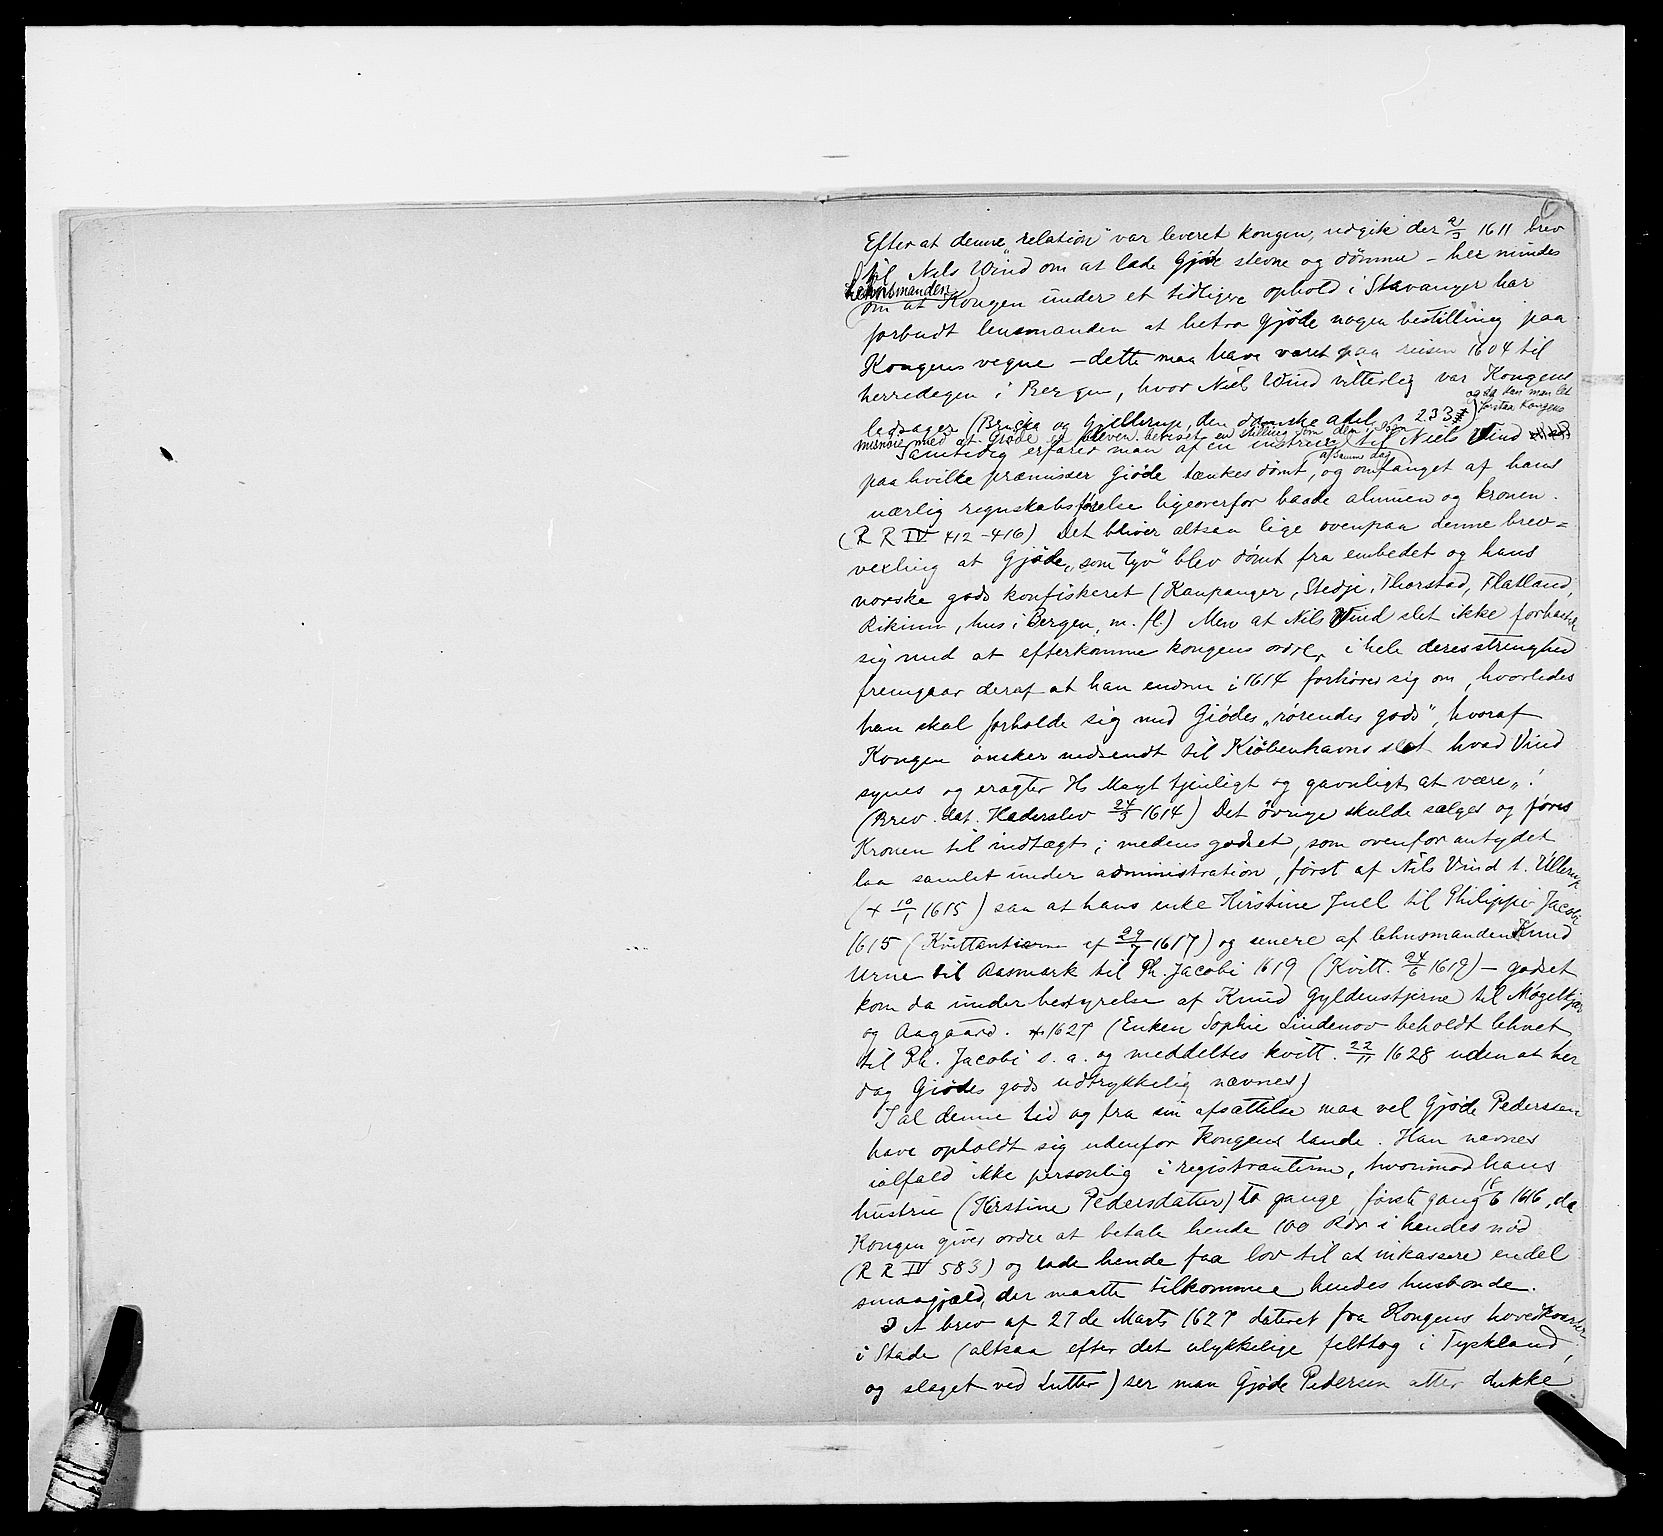 Efter at denne "relation" var leveret kongen, udgik der 21/3 1611 brev
til Nils Wind om at lade Gjøde stevne og dömme – her mindes
lehnsmanden
om at Kongen under et tidligere ophold i Stavanger har
forbudt lensmanden at betro Gjöde nogen bestilling paa
Kongens vegne – dette maa have været paa reisen 1604 til
herredagen i Bergen, hvor Niels Wind vitterlig var Kongens
og da kan man let
forstaa Kongens
ledsager (Bricka og Gjellerup, den danske adel, s 233)
misnöie med at Gjöde er bleven betroet en stilling som den
Samtidig erfarer man af en instrux til Niels Wind
af samme dag
paa hvilke præmisser Gjöde tænkes dömt, og omfanget af hans
uærlig regnskabsförelse ligeoverfor baade almuen og kronen.
(R R IV 412-416) Det bliver altsaa lige ovenpaa denne brev=
vexling at Gjøde "som tyv" blev dömt fra embedet og hans
norske gods konfiskeret (Kaupanger, Stedje, Thorstad, Flatland,
Rikinn, hus i Bergen, m. fl.) Men at Nils Vind slet ikke forhastede
sig med at efterkomme kongens ordre i hele deres strenghed
fremgaar deraf at han endnu i 1614 forhörer sig om, hvorledes
han skal forholde sig med Giödes "rörendes gods", hvoraf
Kongen önsker nedsendt til Kiöbenhavns slot hvad Vind
synes og eragter Hs Mayt tjenligt og gavnligt at være"!
(Brev dat. Haderslev 24/3 1614) Det övrige skulde sælges og föres
Kronen til indtægt; medens godset, som ovenfor antydet
laa samlet under administration, först af Nils Vind t. Ullerup
(+ 10/1 1615) saa at hans enke Kirstine Juel til Philippi Jacobi
1615 (Kvittantserne af 29/7 1617) og senere af lehnsmanden Knud
Urne til Aasmark til Ph. Jacobi 1619 (Kvitt. 24/6 1619) – godset
kom da under bestyrelse af Knud Gyldenstjerne til Mögelkjær
og Aagaard. + 1627 (Enken Sophie Lindenov beholdt lehnet
til Ph. Jacobi s. a. og meddeltes kvitt. 22/11 1628 uden at her
dog Giödes gods udtrykkelig nævnes)
I al denne tid og fra sin afsættelse maa vel Gjöde Pederssen
have opholdt sig udenfor kongens lande. Han nævnes
ialfald ikke personlig i registranterne, hvorimod hans
hustru (Kirstine Pedersdatter) to gange, förste gang 1616, da
Kongen giver ordre at betale hende 100 Rdr i hendes nöd
(R R IV 583) og lade hende faa lov til at inkassere endel
smaagjæld, der maatte tilkomme hendes husbonde.
I et brev af 27de Marts 1627 dateret fra Kongens hovedkvarter
i Stade (altsaa efter det ulykkelige felttog i Tyskland,
og slaget ved Lutter) ser man Gjöde Pedersen atter dukke